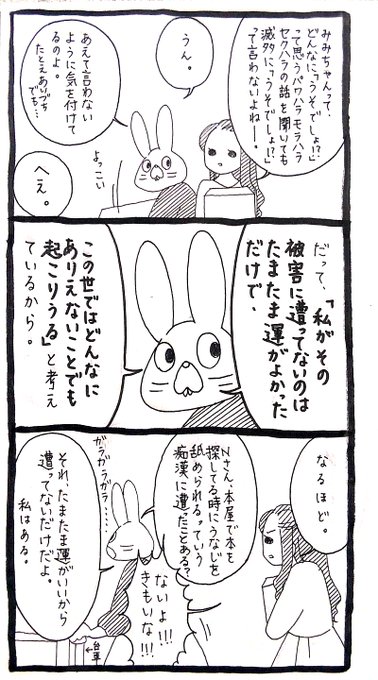 みみちゃんって、
どんなに「うそでしょ!?」
って思うパワハラモラハラ
セクハラの話を聞いても
滅多に「うそでしょ!?」
って言わないよねー。
うん。
あえて言わない
ように気を付けて
るのよ。
たとえあいづち
でも…
よっこい
へえ。
だって、「私がその
被害に遭ってないのは
たまたま運がよかった
だけで、
この世ではどんなに
ありえないことでも
起こりうる」と考え
ているから。
なるほど。
Nさん、本屋で本を
探してる時にうなじを
舐められるっていう
痴漢に遭ったことある?
ないよ!!!
きもいな!!!
ガラガラガラ……
それ、たまたま運がいいから
遭ってないだけだよ。
私はある。
←台車